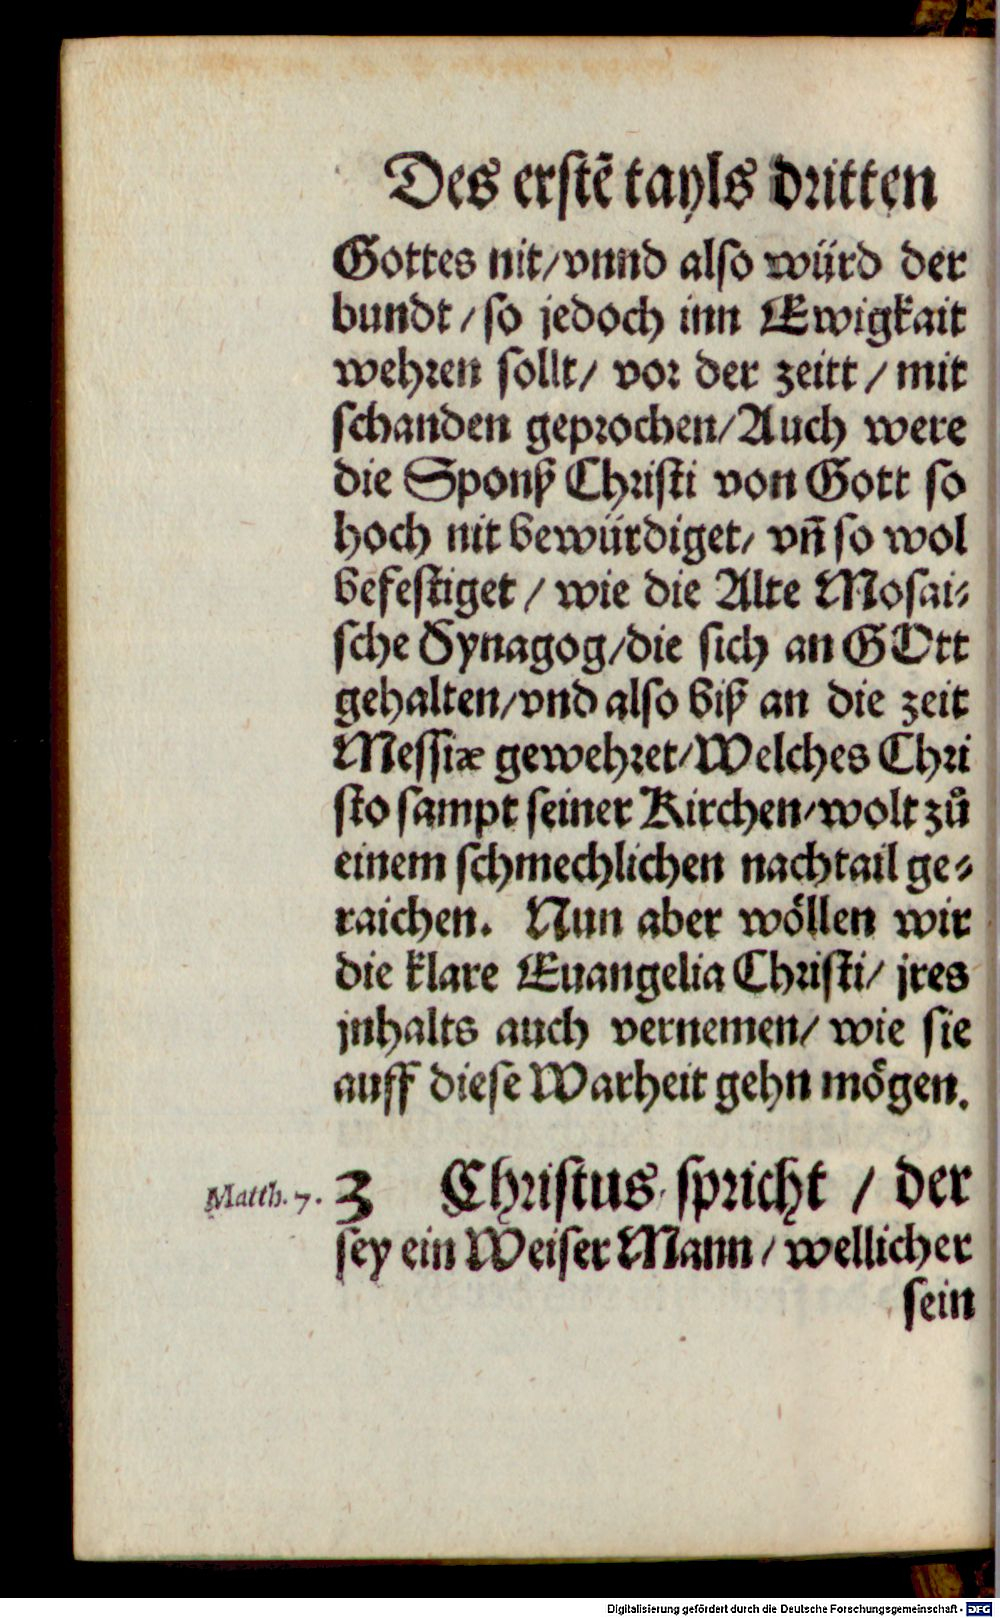 Des erstē tayls dritten
Gottes nit/vnnd also würd der
bundt/so jedoch inn Ewigkait
wehren sollt/ vor der zeitt/mit
schanden geprochen/Auch were
die Sponß Christi von Gott so
hoch nit bewürdiget/ vn̄ so wol
befestiget/ wie die Alte Mosai⸗
sche Synagog/die sich an GOtt
gehalten/vnd also biß an die zeit
Messiæ gewehret/Welches Chri
sto sampt seiner Kirchen/wolt zů
einem schmechlichen nachtail ge⸗
raichen. Nun aber wöllen wir
die klare Euangelia Christi/ jres
jnhalts auch vernemen/ wie sie
auff diese Warheit gehn mögen.
Matth. 7. 3 Christus spricht / der
sey ein Weiser Mann/wellicher
sein
Digitalisierung gefördert durch die Deutsche Forschungsgemeinschaft - DFG